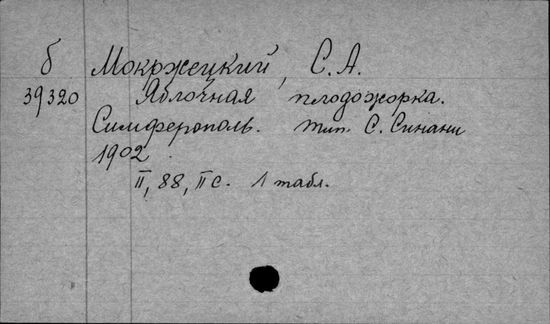 б Мокржецкий, С.А.
39320 Яблочная плодожорка.
Симферополь. тип. С. Синани
1902
II, 88, II с. 1 табл.